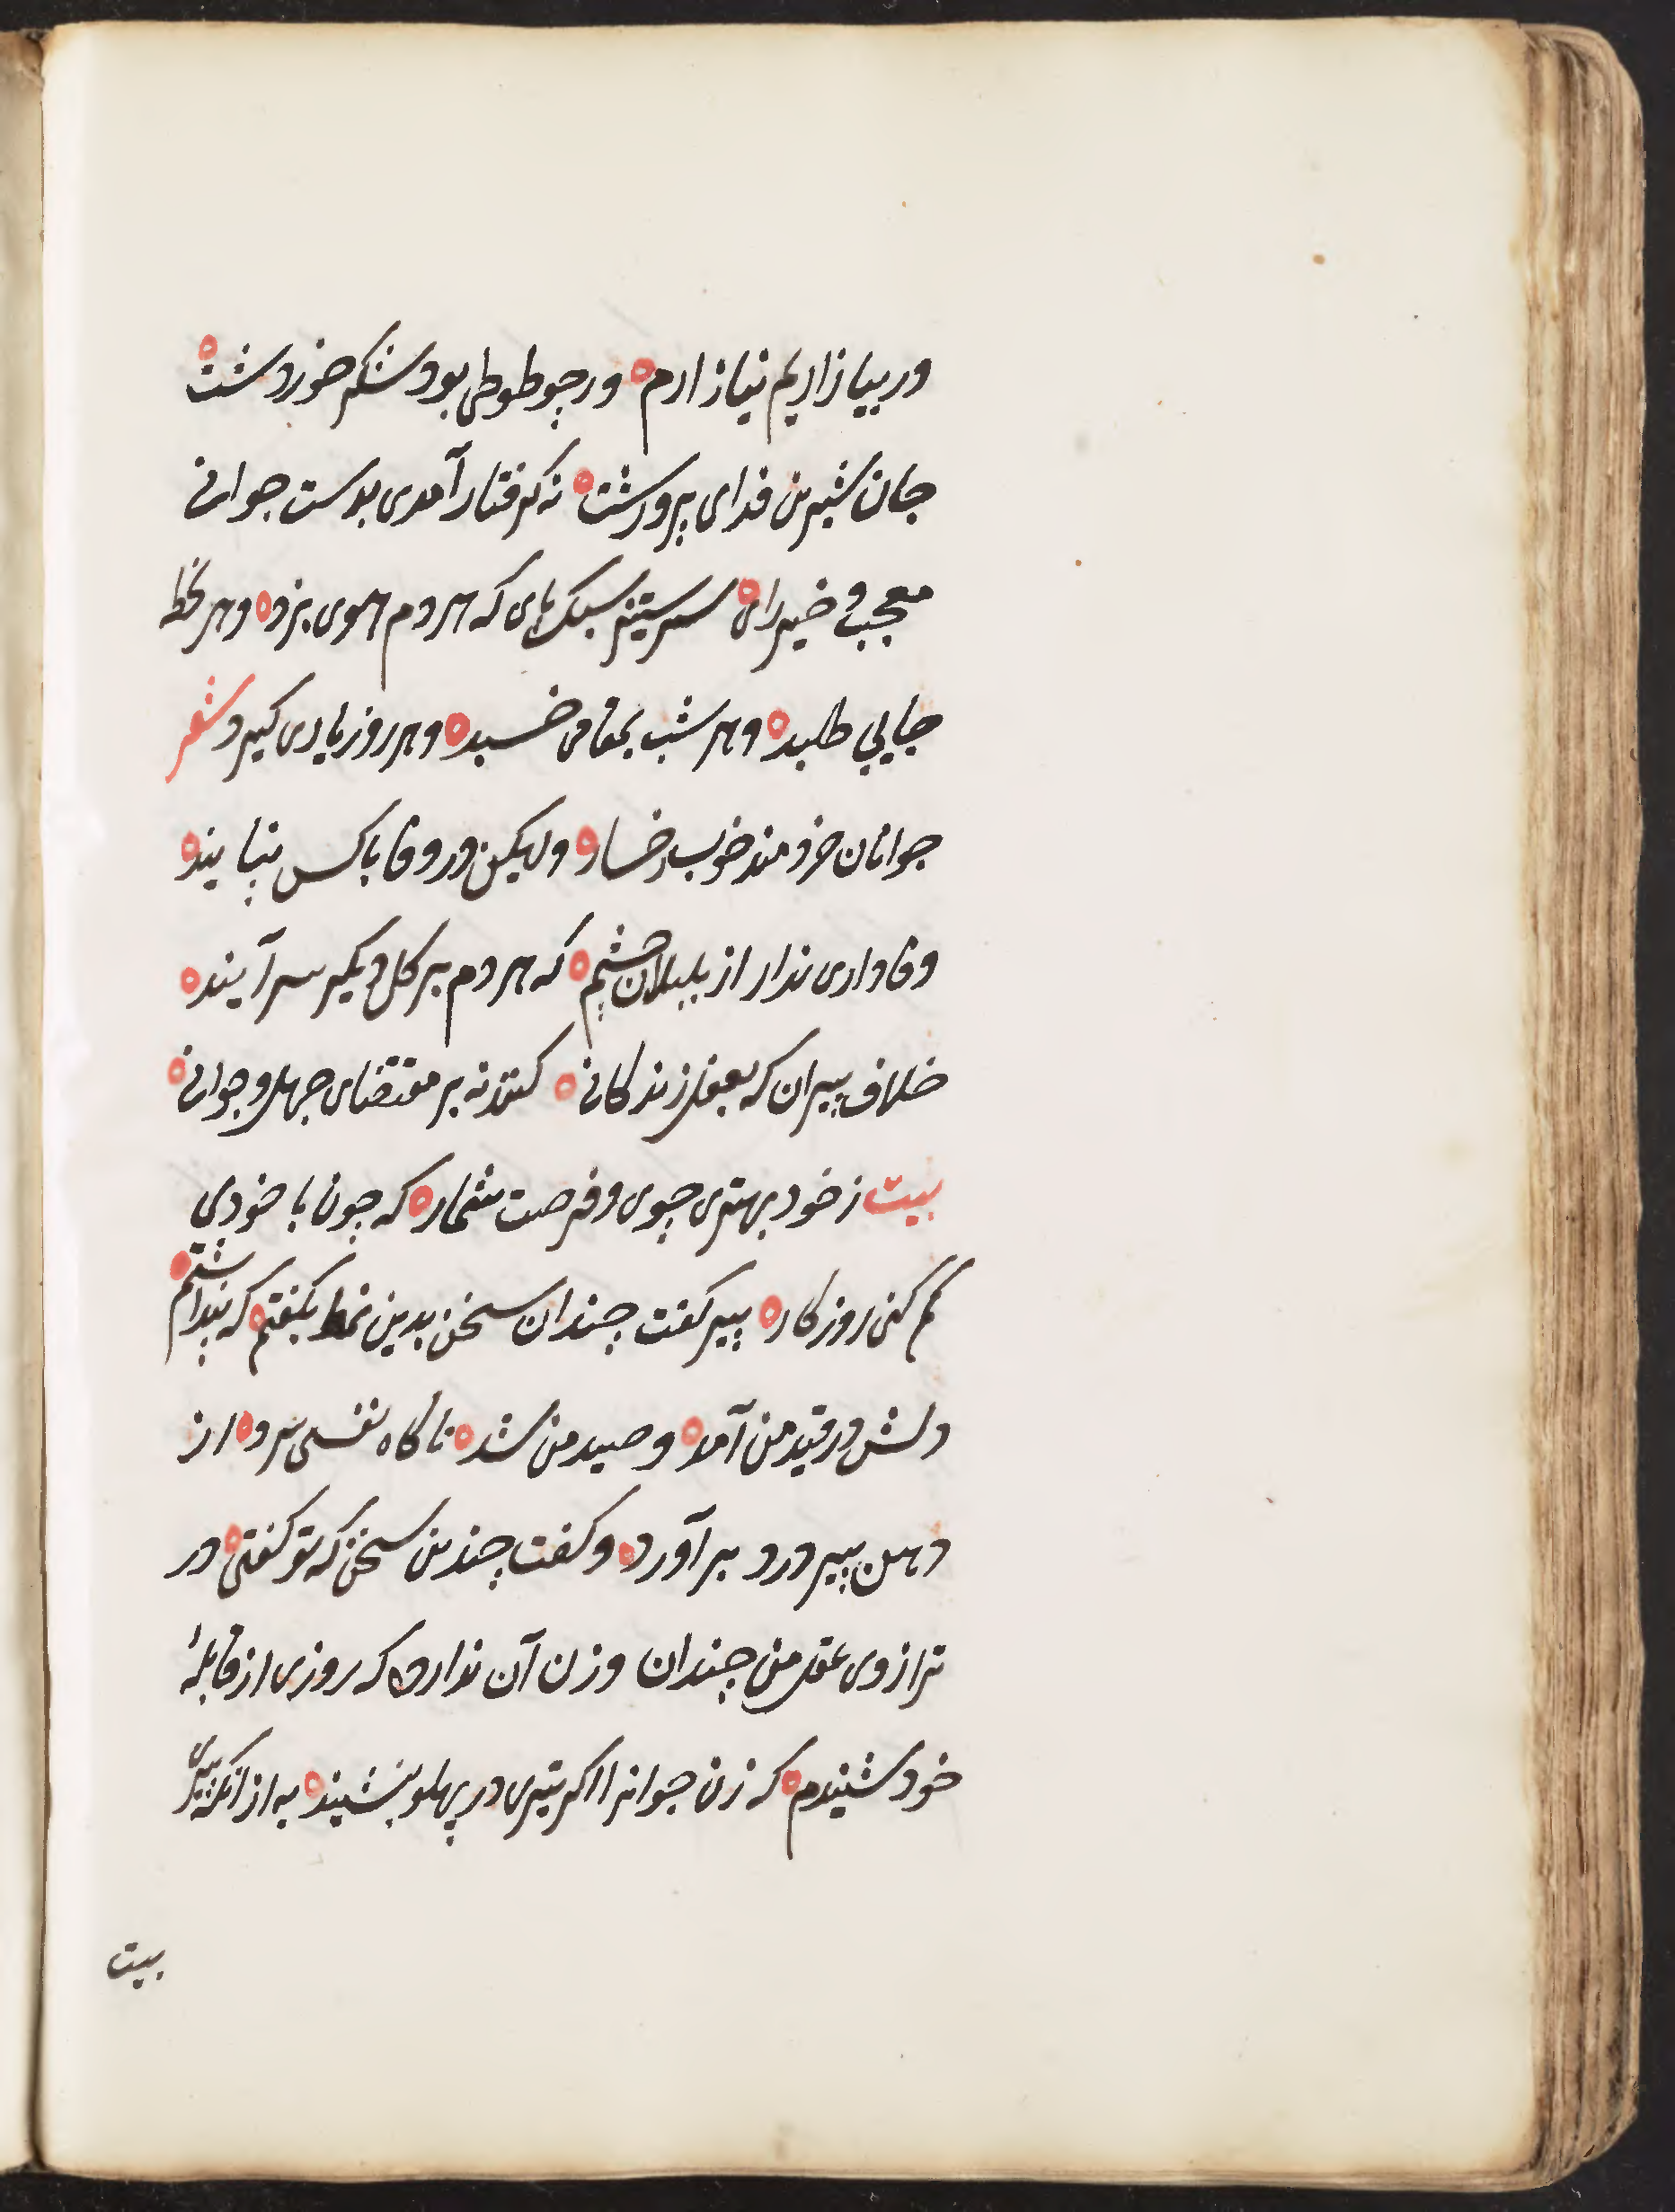 ور بیازاریم نیازارم ه ورچو طوطی بود شکر خورشت ه
جان شیرین فدای پرورشت ه نه کرفتار آمدی بدست جوانی
معجب و خیرا ه سرستیز سبک پای که هر دم هوی پزد ه و هر لحظ
جایی طلبد ه و هر شب بمقامی خسبد ه و هر روز یاری کیرد شعر
جوانان خردمند خوب رخسار ه ولیکن در وفا با کس نپایند ه
وفاداری ندار از بلبلان چشم ه که هر دم بر کل دیکر سرآیند ه
خلاف پیران که بعقل زندکانی ه کنند نه بر مقتضای جهل و جوانی ه
بیت ز خود بهتری جوی و فرصت شمار ه که چون با خودی
کم کنی روزکار ه پیر کفت چندان سخن بدین نمط بکفتم ه که پنداشتم ه
دلش در قید من آمد ه و صید من شد ه ناکاه نفسی سرد ه از
دهن پیر درد برآورد ه و کفت چندین سخن که تو کفتی ه در
ترازوی عقل من چندان وزن آن ندارد ه که روزی از قابلهٔ
خود شنیدم ه که زن جوانرا اکر تیری در پهلو نشیند ه به از آنکه پیری
بیت